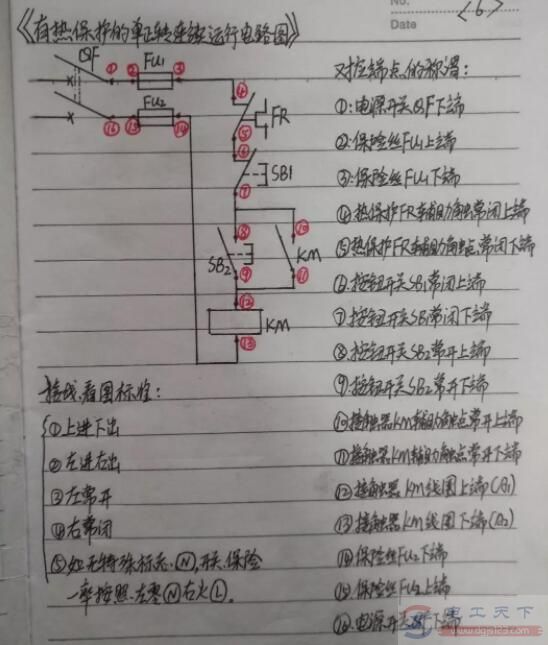 No.
Date
<6>
《有热保护的单正转连续运行电路图》
QF
①
②
FU1
③
FU2
⑯
⑮
⑭
④
FR
⑤
⑥
SB1
⑦
⑧
⑩
SB2
KM
⑨
⑪
⑫
KM
⑬
对应端点的称谓：
①:电源开关QF下端
②:保险丝FU1上端
③:保险丝FU1下端
④热保护FR辅助触常闭上端
⑤热保护FR辅助触点常闭下端
⑥按钮开关SB1常闭上端
⑦按钮开关SB1常闭下端
⑧按钮开关SB2常开上端
⑨按钮开关SB2常开下端
⑩接触器KM辅助触点常开上端
⑪接触器KM辅助触点常开下端
⑫接触器KM线圈上端(A1)
⑬接触器KM线圈下端(A2)
⑭保险丝FU2下端
⑮保险丝FU2上端
⑯电源开关QF下端
接线,看图标准：
①上进下出
②左进右出
③左常开
④右常闭
⑤如无特殊标志.Ⓝ,开关.保险
一率按照.左零Ⓝ右火Ⓛ.
电工天下
www.dgjs123.com